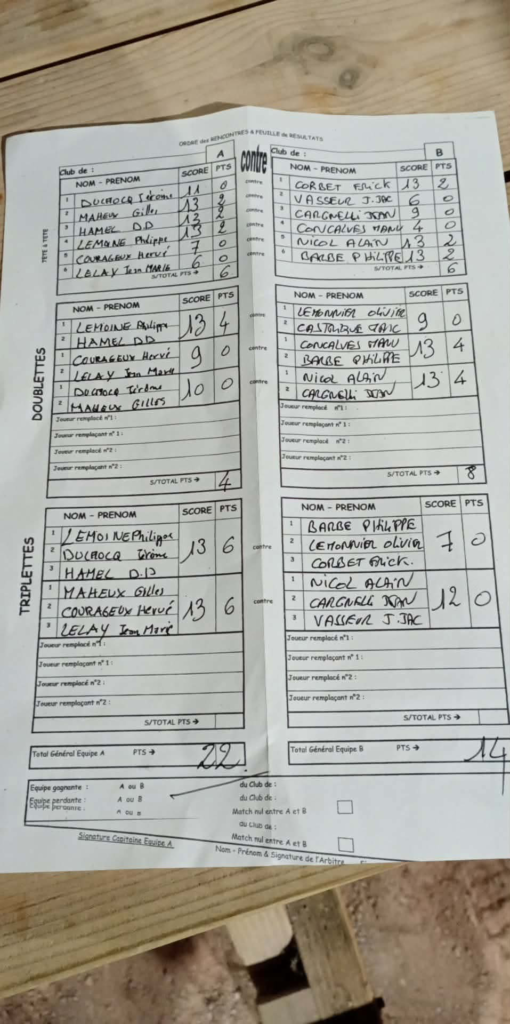 ORDRE des RENCONTRES & FEUILLE de RÉSULTATS
Club de : A
contre
Club de : B
NOM - PRENOM SCORE PTS
NOM - PRENOM SCORE PTS
TÊTE A TÊTE
1 DUCROCQ Jérôme 11 0 contre 1 CORBET ERICK 13 2
2 MAHEUX Gilles 13 2 contre 2 VASSEUR J.JAC 6 0
3 HAMEL D.D 13 2 contre 3 CARGNELLI JEAN 9 0
4 LEMOINE Philippe 13 2 contre 4 GONCALVES MANU 4 0
5 COURAGEUX Hervé 7 0 contre 5 NICOL ALAIN 13 2
6 LELAY Jean Marie 6 0 contre 6 BARBE PHILIPPE 13 2
S/TOTAL PTS → 6
S/TOTAL PTS → 6
DOUBLETTES
NOM - PRENOM SCORE PTS
NOM - PRENOM SCORE PTS
1 LEMOINE Philippe 13 4 contre 1 LEMONNIER OLIVIER 9 0
2 HAMEL DD 2
1 COURAGEUX Hervé 9 0 contre 1 GONCALVES MANU 13 4
2 LELAY Jean Marie 2 BARBE PHILIPPE
1 DUCROCQ Jérôme 10 0 contre 1 NICOL ALAIN 13 4
2 MAHEUX GILLES 2 CARGNELLI JEAN
Joueur remplacé n°1 :
Joueur remplaçant n°1 :
Joueur remplacé n°2 :
Joueur remplaçant n°2 :
S/TOTAL PTS → 4
Joueur remplacé n°1 :
Joueur remplaçant n°1 :
Joueur remplacé n°2 :
Joueur remplaçant n°2 :
S/TOTAL PTS → 8
TRIPLETTES
NOM - PRENOM SCORE PTS
NOM - PRENOM SCORE PTS
1 LEMOINE Philippe 1 BARBE PHILIPPE
2 DUCROCQ Jérôme 13 6 contre 2 LEMONNIER OLIVIER 7 0
3 HAMEL D.D 3 CORBET ERICK.
1 MAHEUX Gilles 1 NICOL ALAIN
2 COURAGEUX Hervé 13 6 contre 2 CARGNELLI JEAN 12 0
3 LELAY Jean Marie 3 VASSEUR J.JAC
Joueur remplacé n°1 :
Joueur remplaçant n°1 :
Joueur remplacé n°2 :
Joueur remplaçant n°2 :
S/TOTAL PTS →
Joueur remplacé n°1 :
Joueur remplaçant n°1 :
Joueur remplacé n°2 :
Joueur remplaçant n°2 :
S/TOTAL PTS →
Total Général Equipe A PTS → 22
Total Général Equipe B PTS → 14
Equipe gagnante : A ou B du Club de :
Equipe perdante : A ou B du Club de :
Match nul entre A et B
du Club de :
Match nul entre A et B
Signature Capitaine Equipe A
Nom - Prénom & Signature de l'Arbitre